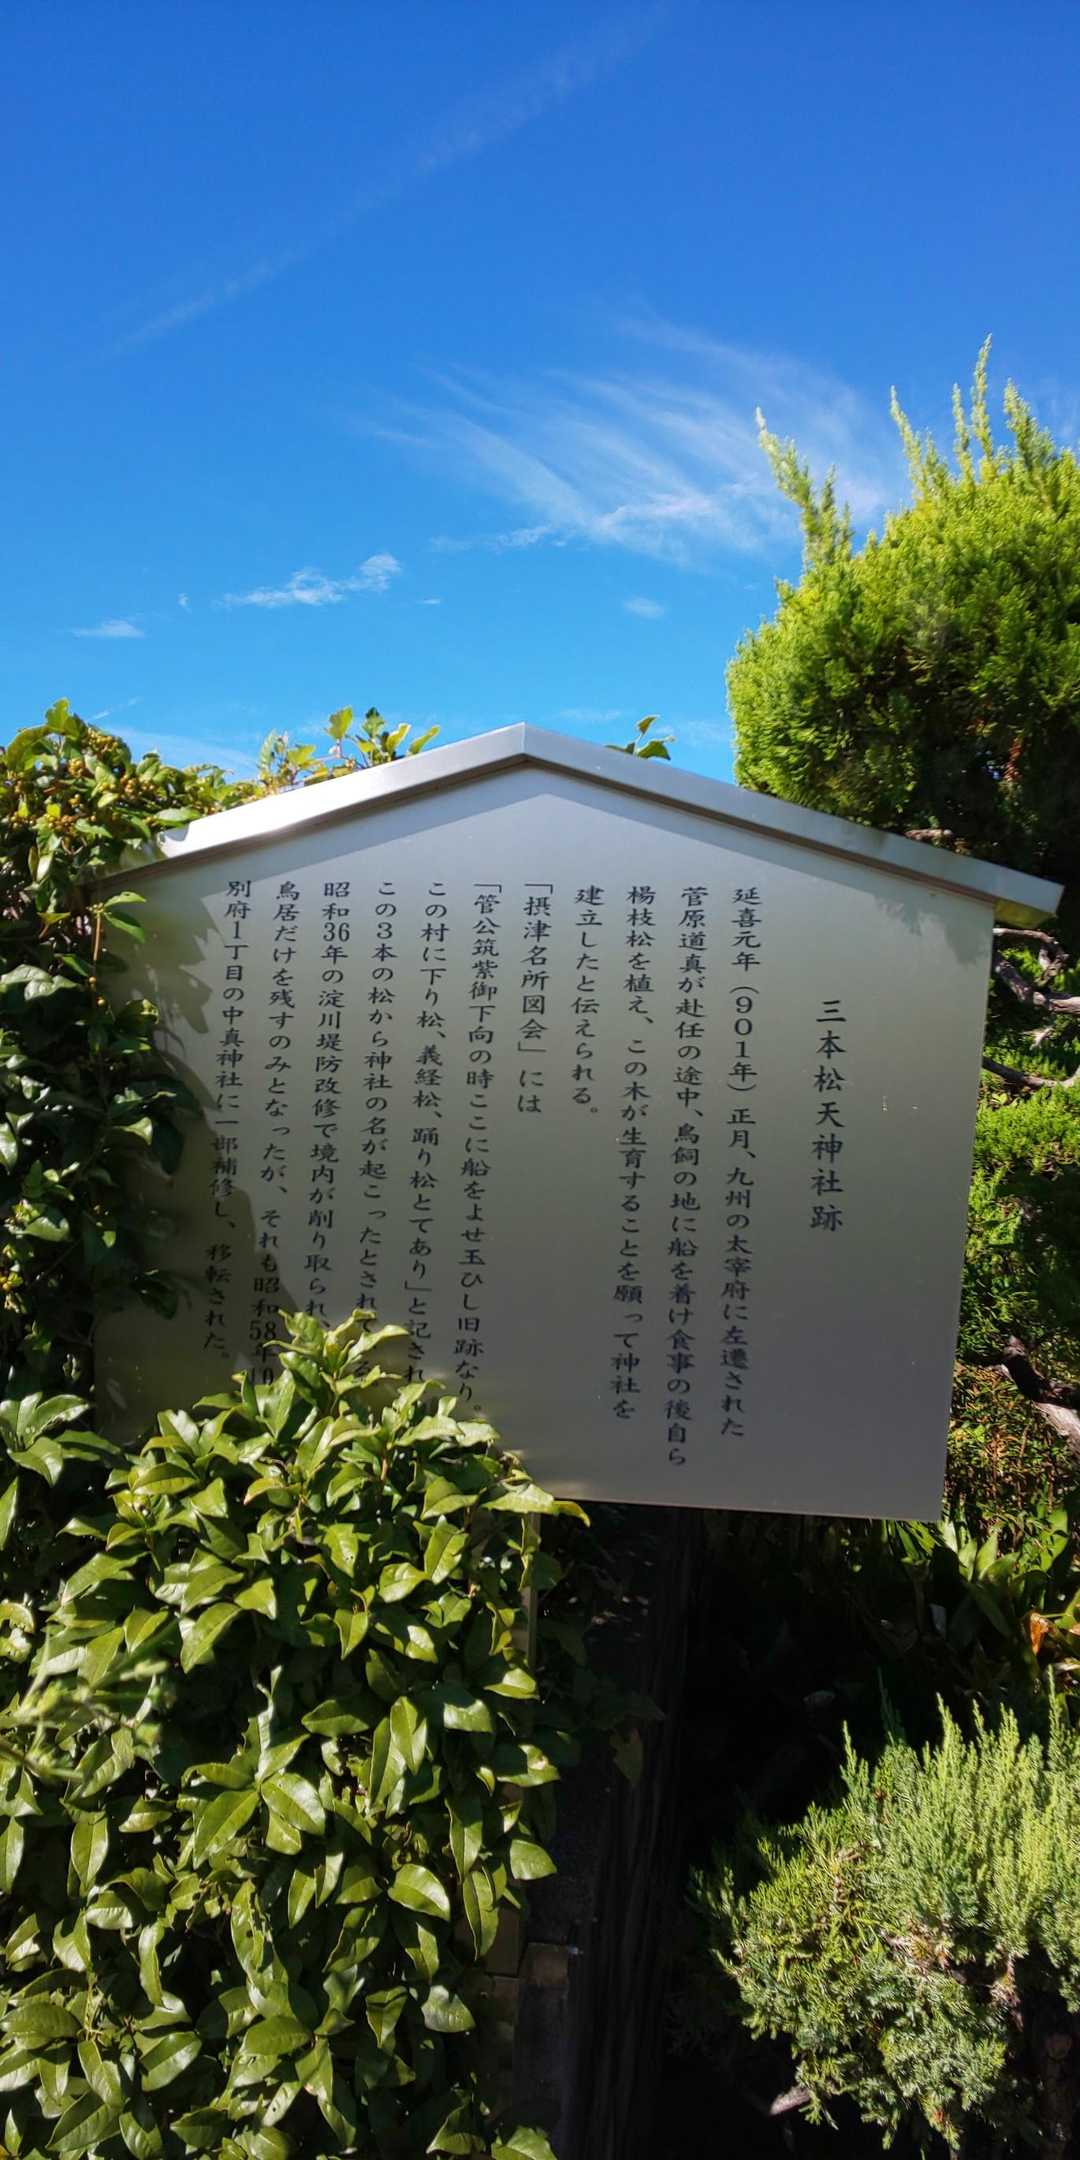 三本松天神社跡
延喜元年（９０１年）正月、九州の太宰府に左遷された
菅原道真が赴任の途中、鳥飼の地に船を着け食事の後自ら
楊枝松を植え、この木が生育することを願って神社を
建立したと伝えられる。
「摂津名所図会」には
「管公筑紫御下向の時ここに船をよせ玉ひし旧跡なり。
この村に下り松、義経松、踊り松とてあり」と記され
この３本の松から神社の名が起こったとされてる
昭和36年の淀川堤防改修で境内が削り取られ、
鳥居だけを残すのみとなったが、それも昭和58年10
別府１丁目の中真神社に一部補修し、移転された。